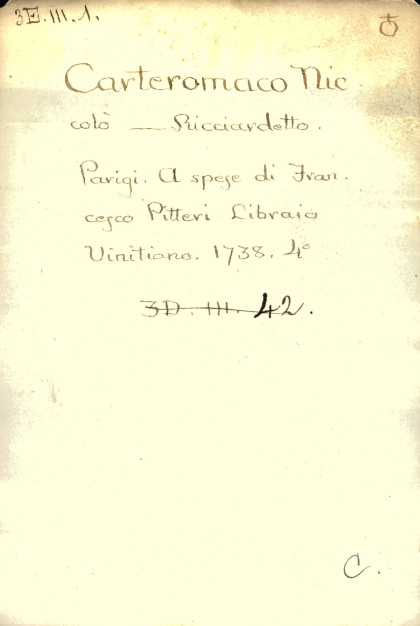 3E.III.1.
Carteromaco Nic
colò — Ricciardetto.
Parigi. A spese di Fran.
cesco Pitteri Libraio
Vinitiano. 1738. 4°
3D. III. 42.
C.